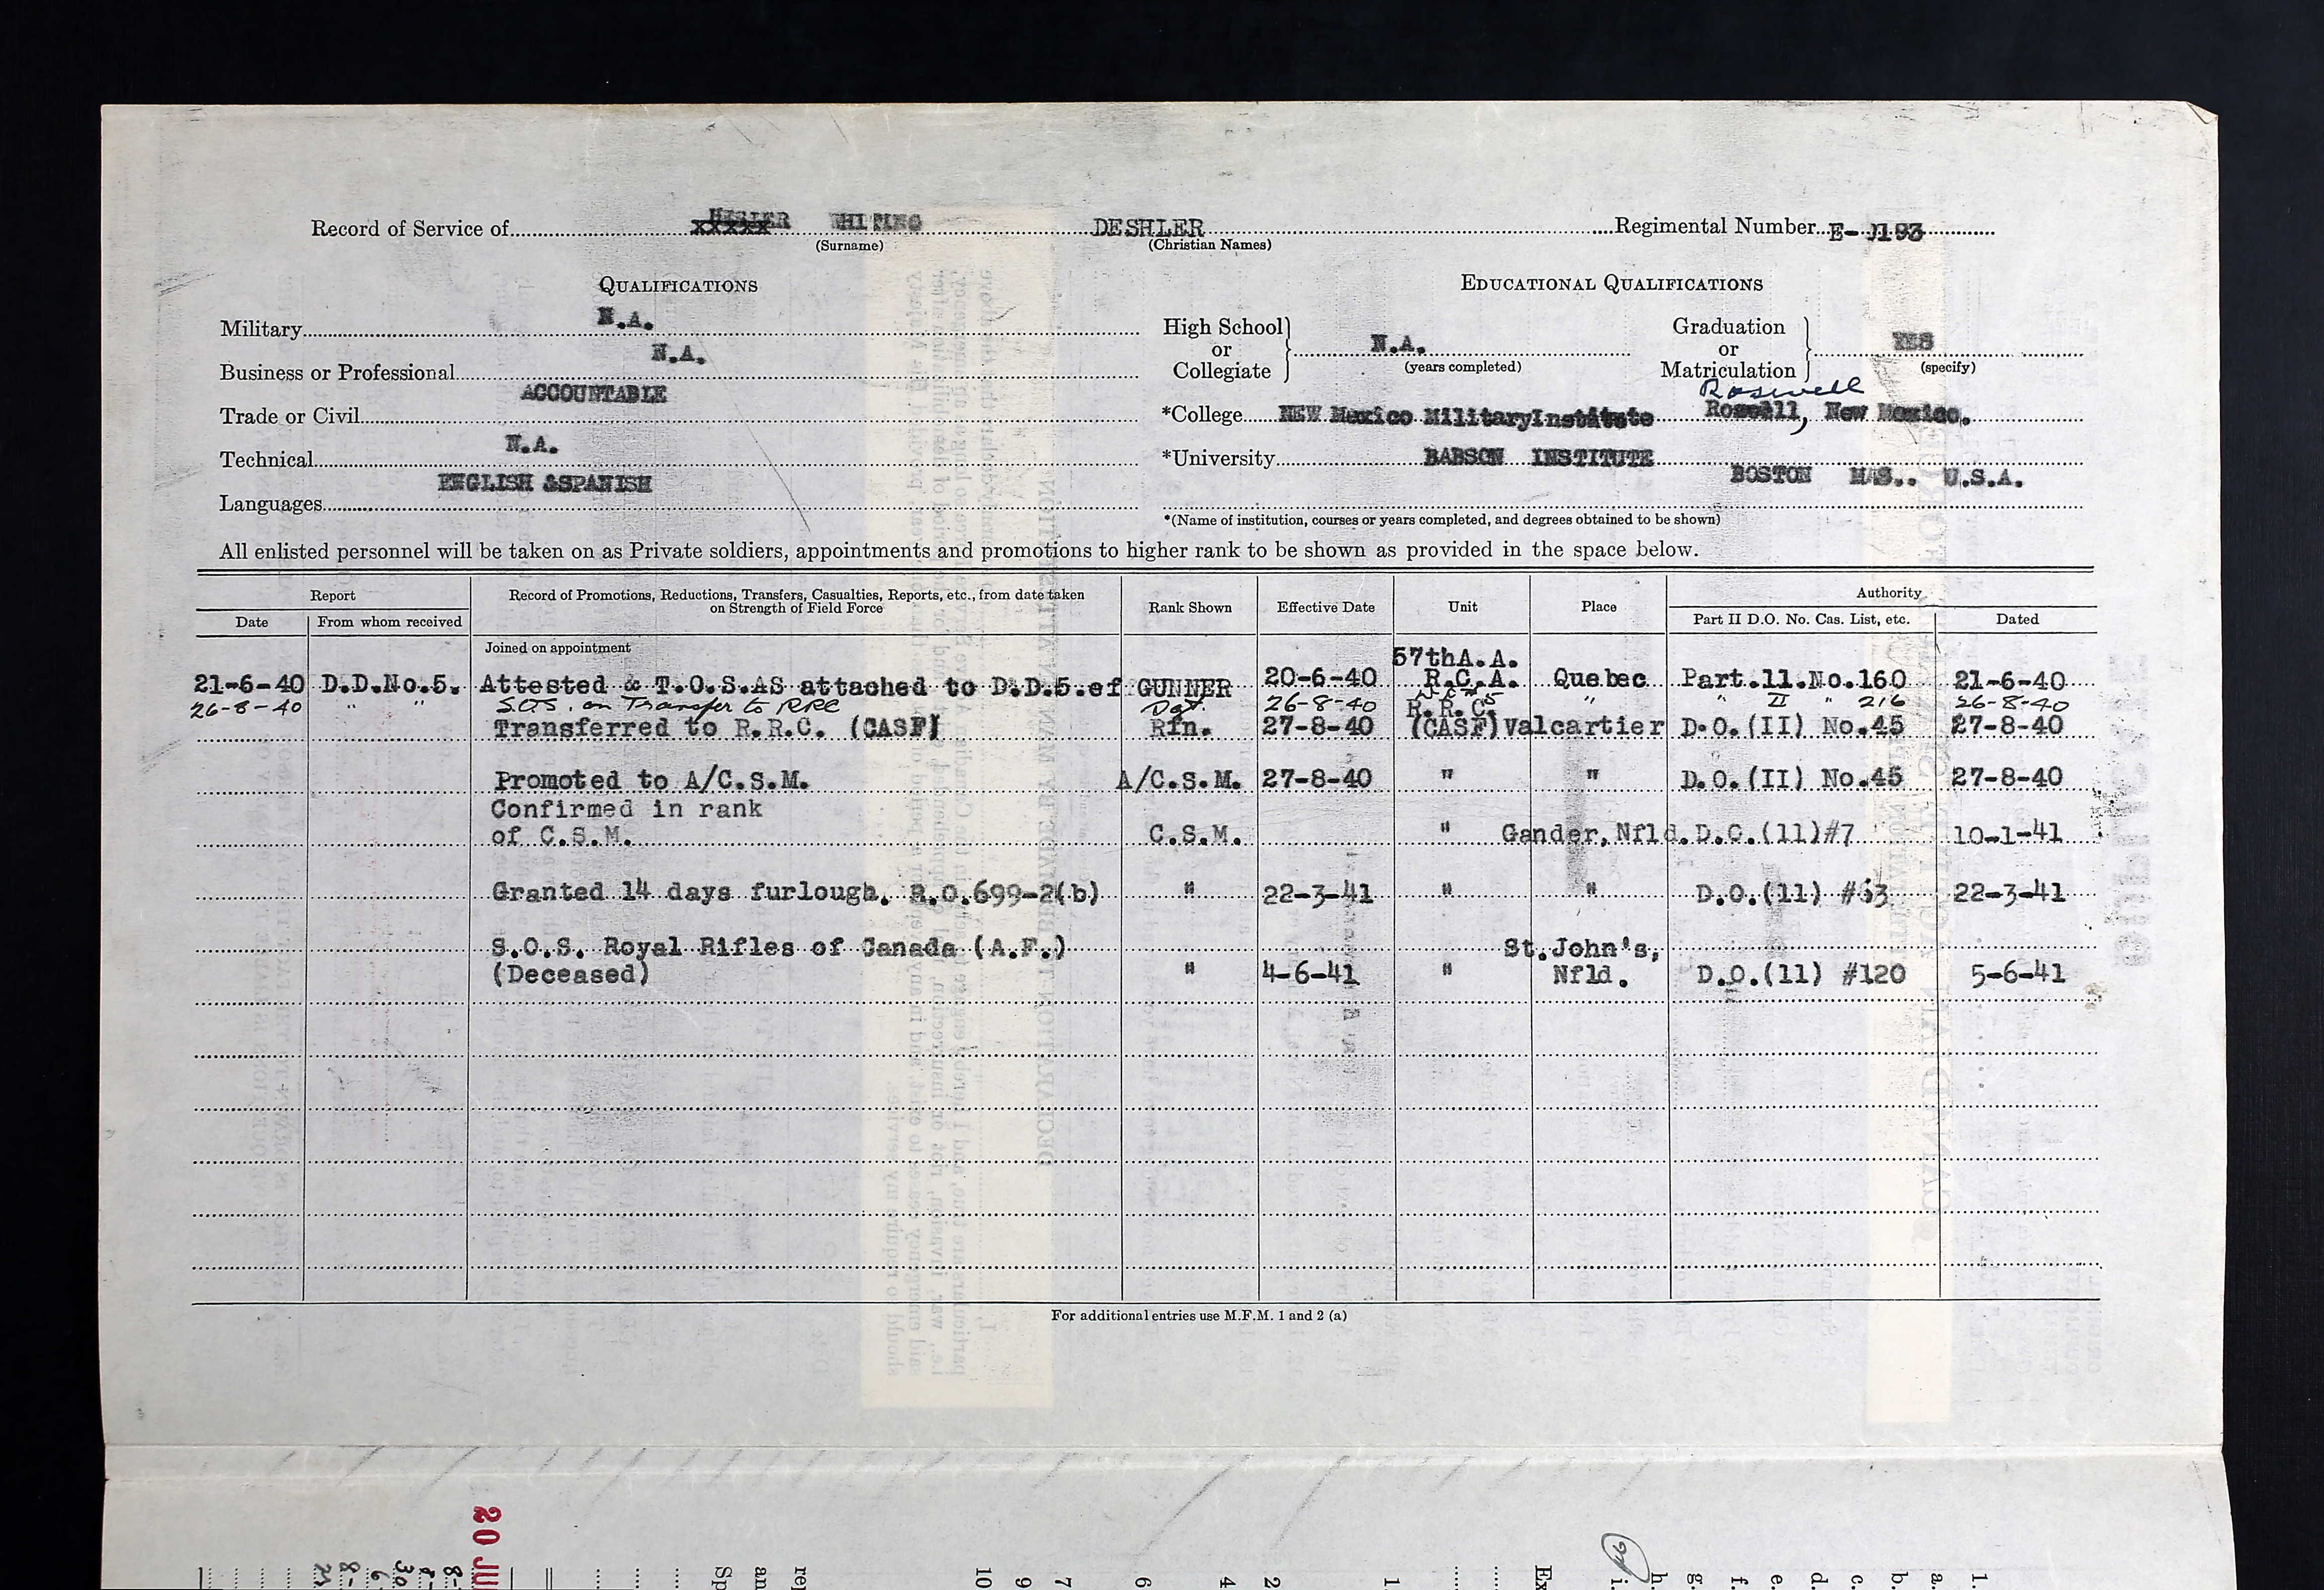 Record of Service of WHITING DESHLER Regimental Number E-
(Surname) (Christian Names)
QUALIFICATIONS EDUCATIONAL QUALIFICATIONS
Military N.A.
Business or Professional N.A.
Trade or Civil ACCOUNTABLE
Technical N.A.
Languages ENGLISH &SPANISH
High School or Collegiate N.A. (years completed) Graduation or Matriculation YES (specify)
Roswell
*College NEW Mexico MilitaryInstitute Roswell, New Mexico.
*University BABSON INSTITUTE BOSTON MAS.. U.S.A.
*(Name of institution, courses or years completed, and degrees obtained to be shown)
All enlisted personnel will be taken on as Private soldiers, appointments and promotions to higher rank to be shown as provided in the space below.
Report
Date From whom received
Record of Promotions, Reductions, Transfers, Casualties, Reports, etc., from date taken
on Strength of Field Force
Rank Shown Effective Date Unit Place
Authority
Part II D.O. No. Cas. List, etc. Dated
Joined on appointment
21-6-40 D.D.No.5. Attested & T.O.S.AS attached to D.D.5.ef GUNNER 20-6-40 57thA.A. R.C.A. Quebec Part.11.No.160 21-6-40
26-8-40 " " S.O.S. on Transfer to RRC 26-8-40 " " II " 216 26-8-40
Transferred to R.R.C. (CASF) Rfn. 27-8-40 R.R.C. (CASF) Valcartier D.O.(II) No.45 27-8-40
Promoted to A/C.S.M. A/C.S.M. 27-8-40 " " D.O.(II) No.45 27-8-40
Confirmed in rank
of C.S.M. C.S.M. " Gander, Nfld. D.O.(11)#7 10-1-41
Granted 14 days furlough. R.O.699-2(b) " 22-3-41 " " D.O.(11) #63 22-3-41
S.O.S. Royal Rifles of Canada (A.F.) St.John's,
(Deceased) " 4-6-41 " Nfld. D.O.(11) #120 5-6-41
For additional entries use M.F.M. 1 and 2 (a)
20 JU
10 9 7 6 4 2 1
i. h. g. f. e. d. c. b. a. 1.